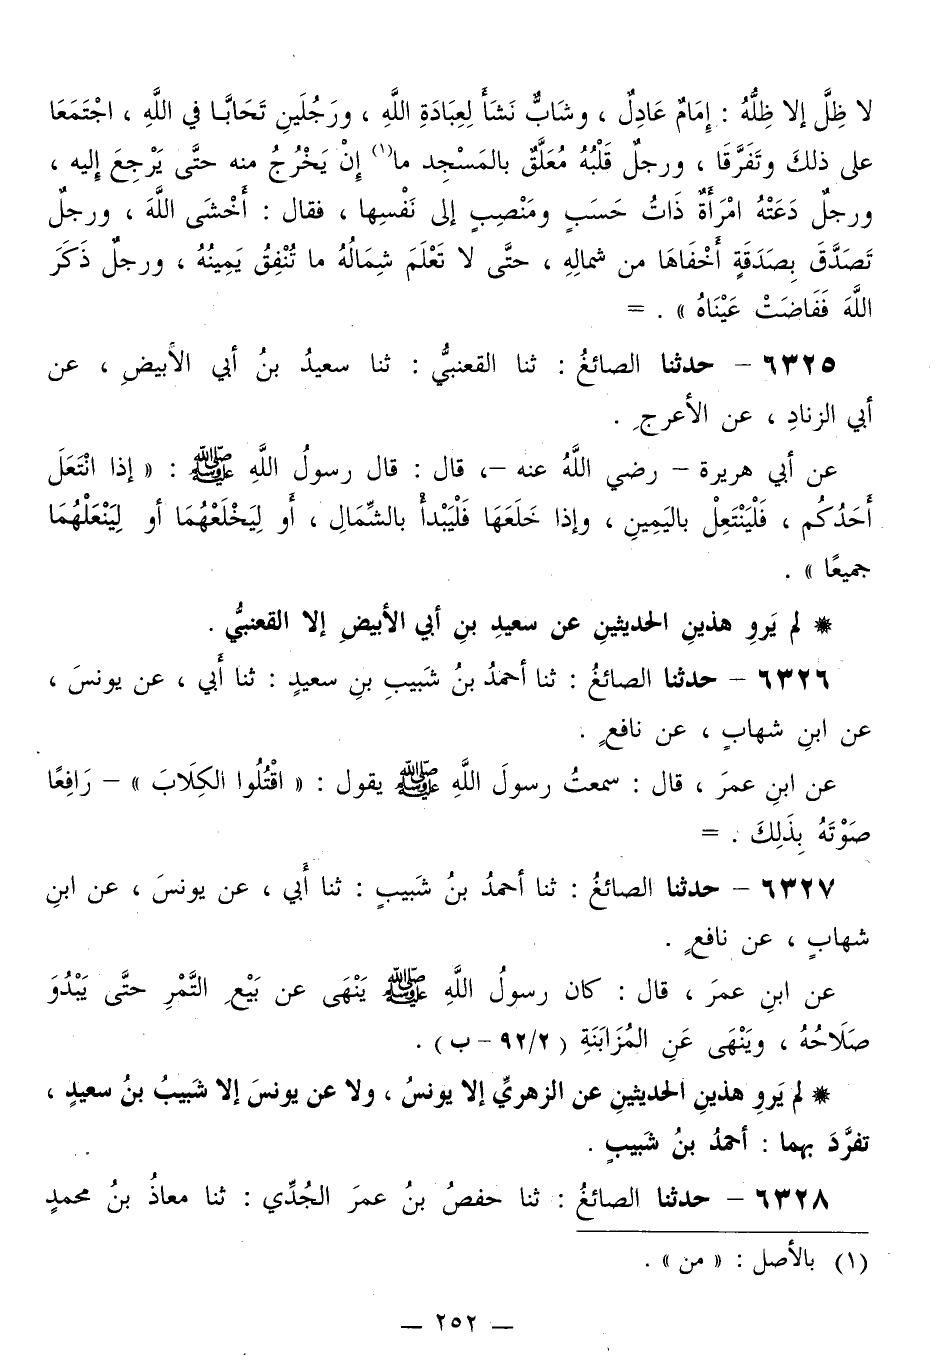 لا ظِلَّ إلا ظِلُّهُ : إِمَامٌ عَادِلٌ ، وشَابٌّ نَشَأَ لِعِبَادَةِ اللَّهِ ، ورَجُلَينِ تَحَابَّا في اللَّهِ ، اجْتَمَعَا
على ذلكَ وتَفَرَّقَا ، ورجلٌ قَلْبُهُ مُعَلَّقٌ بالمَسْجِد ما(١) إِنْ يَخْرُجُ منه حتَّى يَرْجِعَ إليه ،
ورجلٌ دَعَتْهُ امْرَأَةٌ ذَاتُ حَسَبٍ ومَنْصِبٍ إلى نَفْسِها ، فقال : أَخْشَى اللَّهَ ، ورجلٌ
تَصَدَّقَ بِصَدَقَةٍ أَخْفَاهَا من شمالِهِ ، حتَّى لا تَعْلَمَ شِمَالُهُ ما تُنْفِقُ يَمِينُهُ ، ورجلٌ ذَكَرَ
اللَّهَ فَفَاضَتْ عَيْنَاهُ » . =
٦٣٢٥ – حدثنا الصائغُ : ثنا القعنبيُّ : ثنا سعيدُ بنُ أبي الأبيضِ ، عن
أبي الزنادِ ، عن الأعرجِ .
عن أبي هريرة – رضي اللَّهُ عنه –، قال : قال رسولُ اللَّهِ ﷺ : « إذا انْتَعَلَ
أَحَدُكُم ، فَلْيَنْتَعِلْ باليَمِينِ ، وإذا خَلَعَهَا فَلْيَبْدأْ بالشِّمَالِ ، أَو لِيَخْلَعْهُمَا أو لِيَنْعَلْهُمَا
جميعًا » .
* لم يَروِ هذينِ الحديثينِ عن سعيدِ بنِ أبي الأبيضِ إلا القعنبيُّ .
٦٣٢٦ – حدثنا الصائغُ : ثنا أحمدُ بنُ شَبيبِ بنِ سعيدٍ : ثنا أَبي ، عن يونسَ ،
عن ابنِ شهابٍ ، عن نافعٍ .
عن ابنِ عمرَ ، قال : سمعتُ رسولَ اللَّهِ ﷺ يقول : « اقْتُلُوا الكِلَابَ » – رَافِعًا
صَوْتَهُ بِذَلِكَ . =
٦٣٢٧ – حدثنا الصائغُ : ثنا أحمدُ بنُ شَبيبٍ : ثنا أَبي ، عن يونسَ ، عن ابنِ
شهابٍ ، عن نافعٍ .
عن ابنِ عمرَ ، قال : كان رسولُ اللَّهِ ﷺ يَنْهَى عن بَيْعِ التَّمْرِ حتَّى يَبْدُوَ
صَلَاحُهُ ، ويَنْهَى عَنِ المُزَابَنَةِ ( ٩٢/٢ – ب ) .
* لم يَروِ هذينِ الحديثينِ عن الزهريِّ إلا يونسُ ، ولا عن يونسَ إلا شَبيبُ بنُ سعيدٍ ،
تفرَّدَ بهما : أحمدُ بنُ شَبيبٍ .
٦٣٢٨ – حدثنا الصائغُ : ثنا حفصُ بنُ عمرَ الجُدِّي : ثنا معاذُ بنُ محمدٍ
(١) بالأصل : « من » .
– ٢٥٢ –